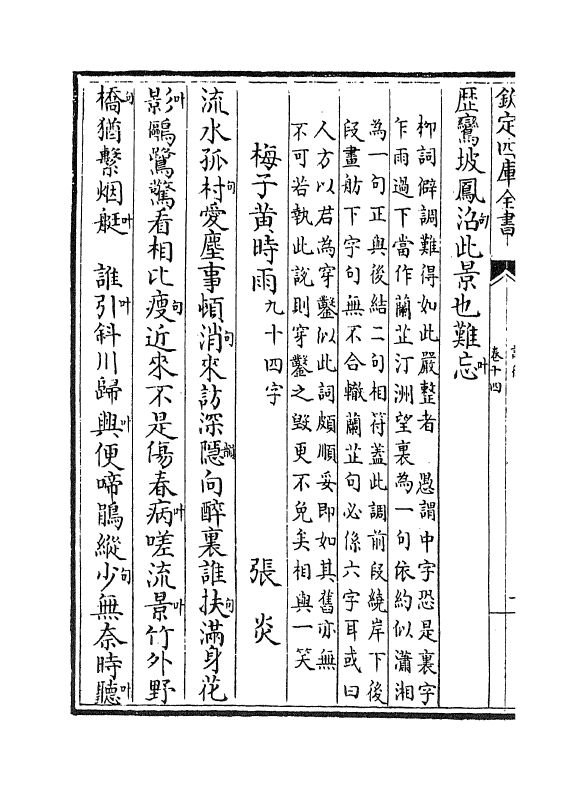 欽定四庫全書
卷十四
歴鸞坡鳳沼句此景也難忘叶
柳詞僻調難得如此嚴整者　愚謂中字恐是裏字
乍雨過下當作蘭芷汀洲望裏為一句依約似瀟湘
為一句正與後結二句相符葢此調前段繞岸下後
段畫舫下字句無不合轍蘭芷句必係六字耳或曰
人方以君為穿鑿似此詞頗順妥即如其舊亦無
不可若執此説則穿鑿之毁更不免矣相與一笑
梅子黄時雨九十四字　張炎
流水孤村句愛塵事頓消句來訪深隱韻向醉裏誰扶句滿身花
影叶鷗鷺驚看相比瘦句近來不是傷春病叶嗟流景叶竹外野
橋句猶繫烟艇叶　誰引叶斜川歸興叶便啼鵑縱少句無奈時聽叶